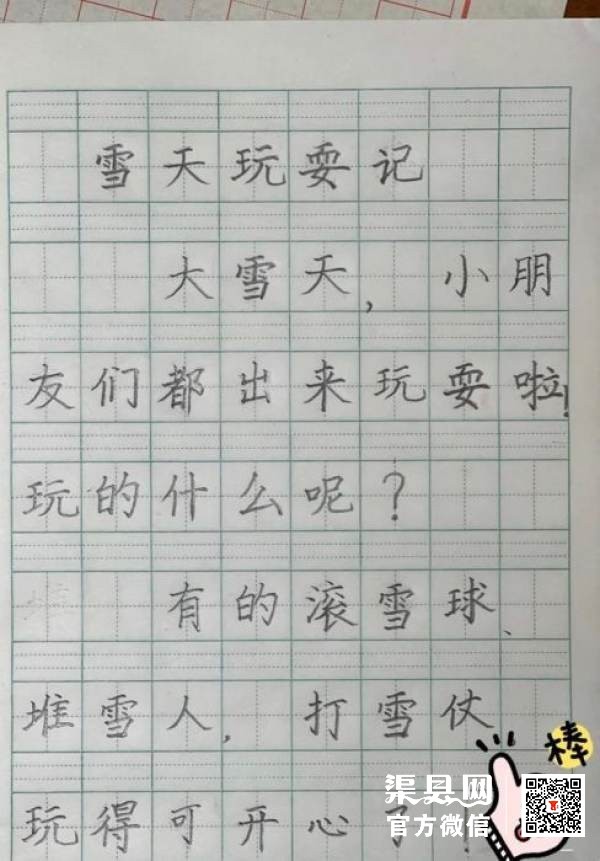 雪天玩耍记
大雪天，小朋
友们都出来玩耍啦！
玩的什么呢？
有的滚雪球、
堆雪人，打雪仗
玩得可开心了
棒
渠县网
官方微信